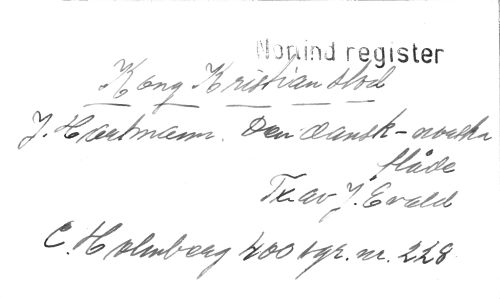 Norlind register
Kong Kristian stod
J. Hartmann. Den dansk-norska
flåde
Tx av J. Evald
C. Holmberg 400 sgr. nr. 228